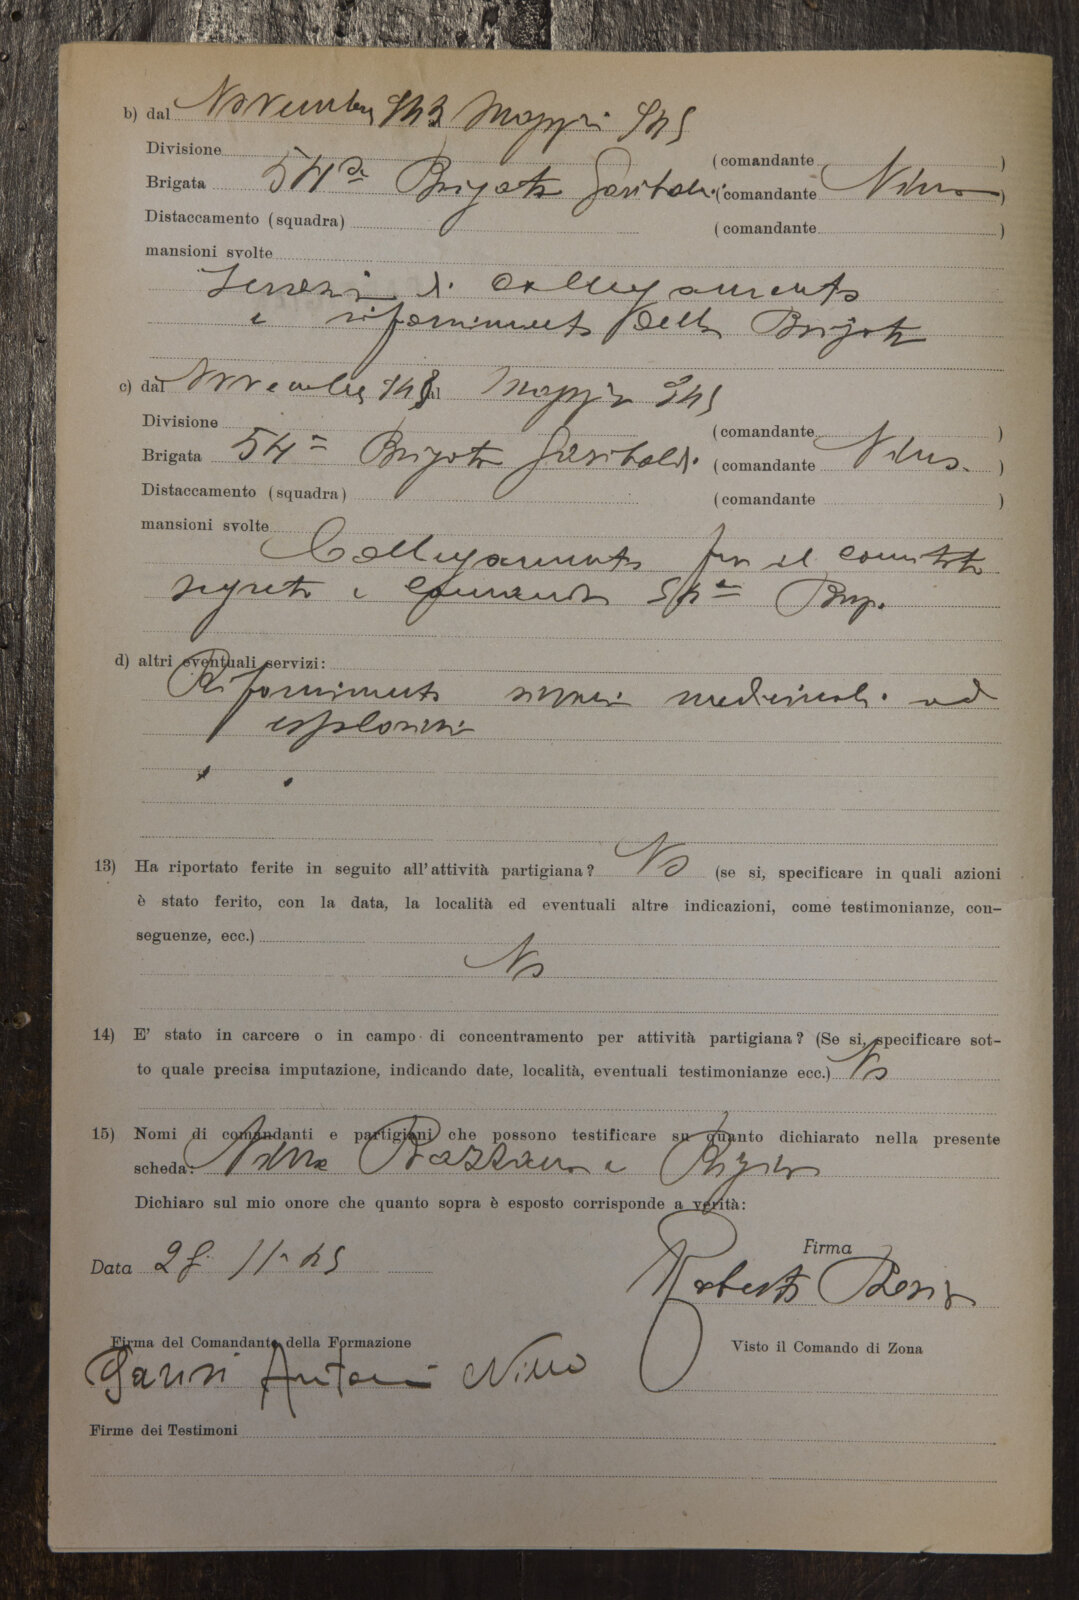 b) dal Novembre 943 Maggio 945
Divisione (comandante )
Brigata 54ª Brigata Garibaldi (comandante Nino )
Distaccamento (squadra) (comandante )
mansioni svolte
Servizi di Collegamento
e rifornimento della Brigata
c) dal Novembre al Maggio 945
Divisione (comandante )
Brigata 54ª Brigata Garibaldi (comandante )
Distaccamento (squadra) (comandante )
mansioni svolte
Collegamento fra il comitato
segreto e comando 54ª Brig.
d) altri eventuali servizi:
Rifornimento medicinali ed
esplosivi
13) Ha riportato ferite in seguito all'attività partigiana? No (se si, specificare in quali azioni
è stato ferito, con la data, la località ed eventuali altre indicazioni, come testimonianze, con-
seguenze, ecc.)
No
14) E' stato in carcere o in campo di concentramento per attività partigiana? (Se si, specificare sot-
to quale precisa imputazione, indicando date, località, eventuali testimonianze ecc.) No
15) Nomi di comandanti e partigiani che possono testificare su quanto dichiarato nella presente
scheda: e
Dichiaro sul mio onore che quanto sopra è esposto corrisponde a verità:
Firma
Data 28 11- 45
Roberto
Firma del Comandante della Formazione
Visto il Comando di Zona
Antonio Nino
Firme dei Testimoni